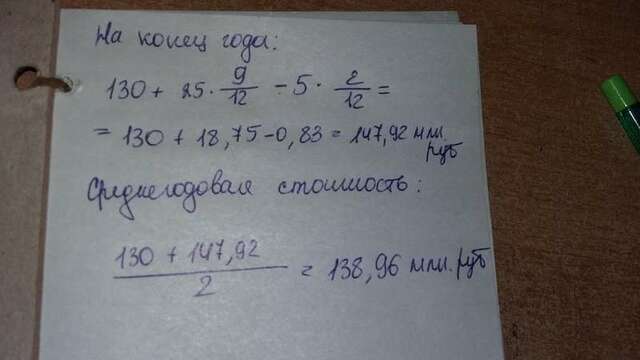 На конец года:
130 + 25 · 9/12 - 5 · 2/12 =
= 130 + 18,75 - 0,83 = 147,92 млн. руб
Среднегодовая стоимость:
130 + 147,92 / 2 = 138,96 млн. руб